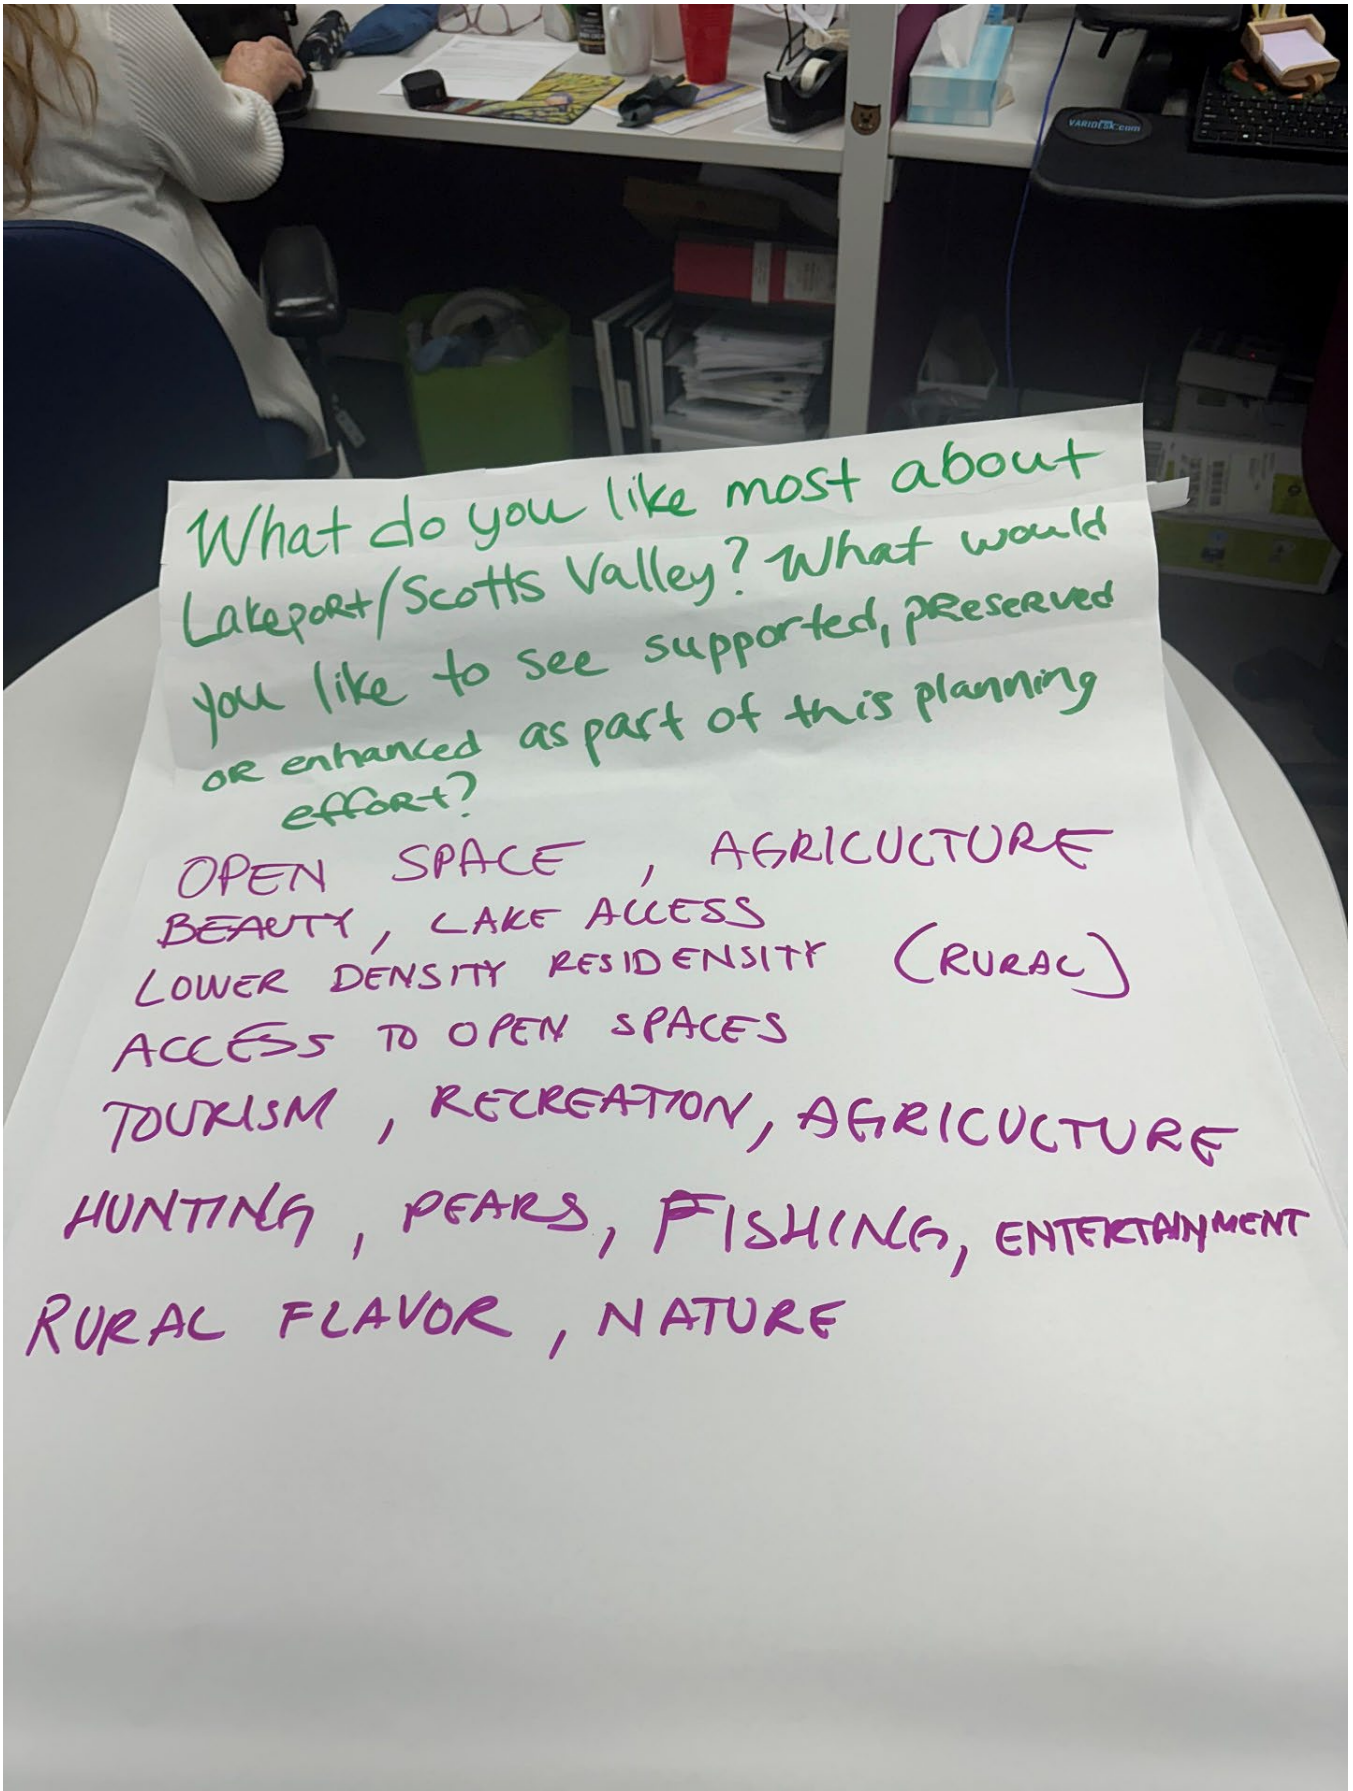 VARIDESK.com
What do you like most about
Lakeport/Scotts Valley? What would
you like to see supported, preserved
or enhanced as part of this planning
effort?
OPEN SPACE, AGRICULTURE
BEAUTY, LAKE ACCESS
LOWER DENSITY RESIDENSITY (RURAL)
ACCESS TO OPEN SPACES
TOURISM, RECREATION, AGRICULTURE
HUNTING, PEARS, FISHING, ENTERTAINMENT
RURAL FLAVOR, NATURE